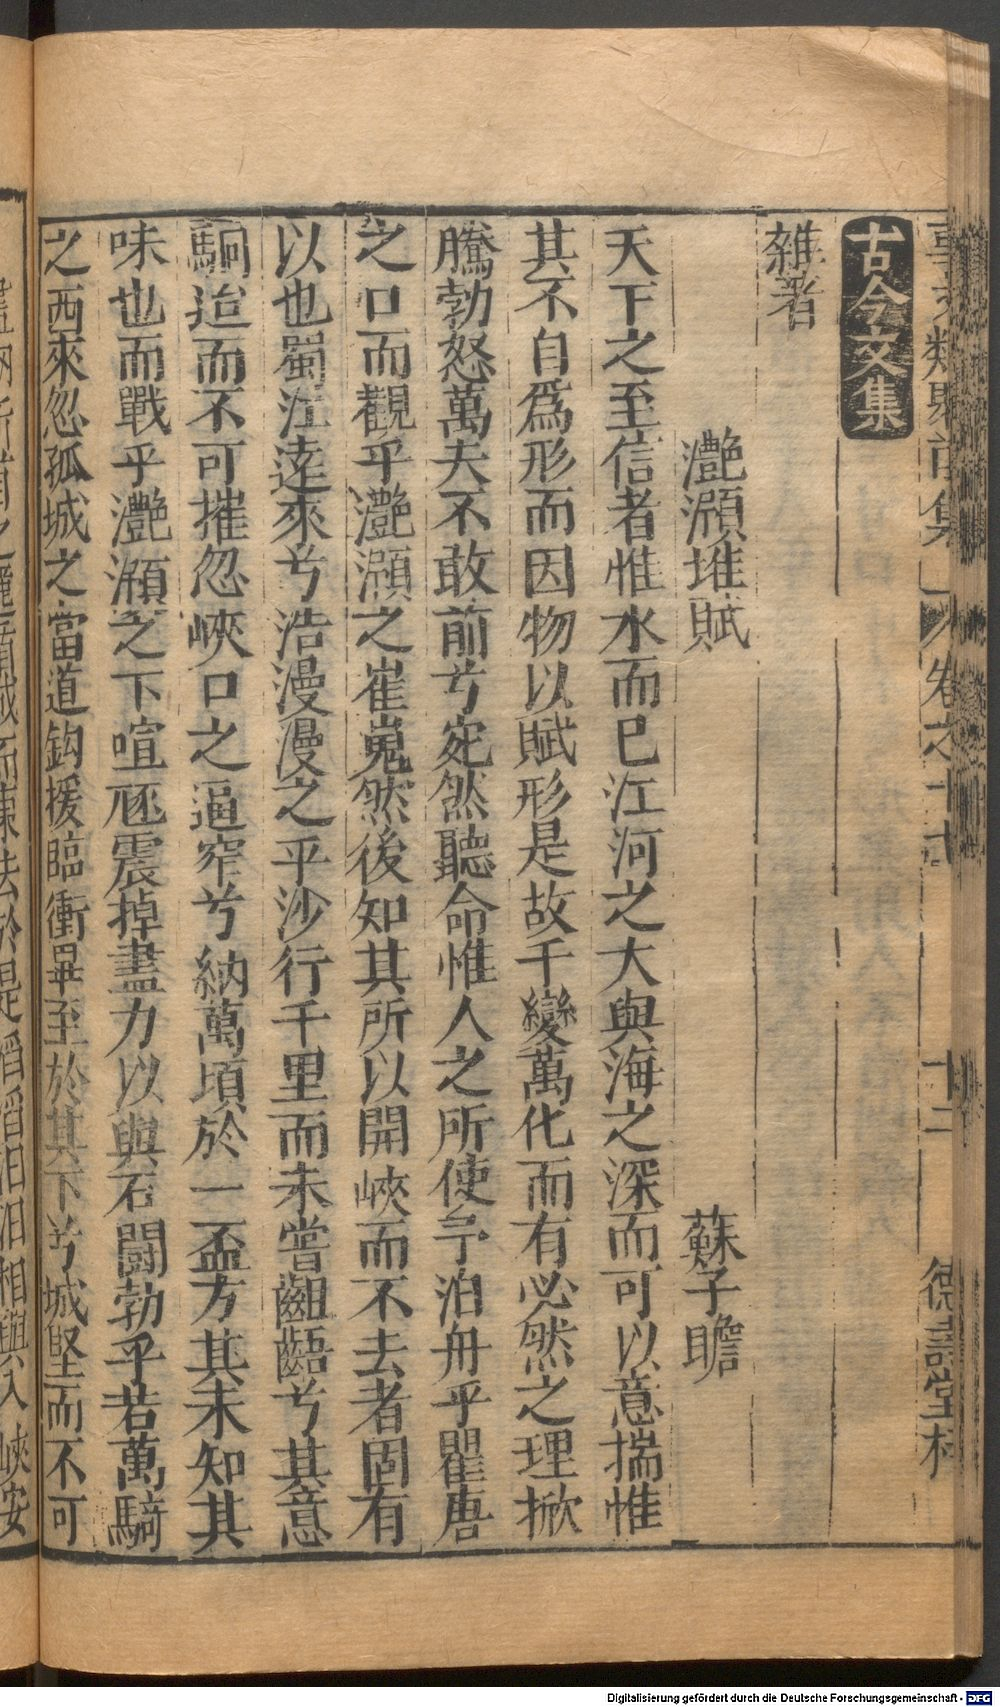 古今文集
雜著
灧澦堆賦 蘇子瞻
天下之至信者惟水而已江河之大與海之深而可以意揣惟
其不自爲形而因物以賦形是故千變萬化而有必然之理掀
騰勃怒萬夫不敢前兮宛然聽命惟人之所使予泊舟乎瞿唐
之口而觀乎灧澦之崔嵬然後知其所以開峽而不去者固有
以也蜀江逺來兮浩漫漫之平沙行千里而未嘗齟齬兮其意
驕迨而不可摧忽峽口之逼窄兮納萬頃於一盃方其未知其
味也而戰乎灧澦之下喧豗震掉盡力以與石鬪勃乎若萬騎
之西來忽孤城之當道鈎援臨衝畢至於其下兮城堅而不可
卷之十七
十二
德壽堂梓
Digitalisierung gefördert durch die Deutsche Forschungsgemeinschaft - DFG